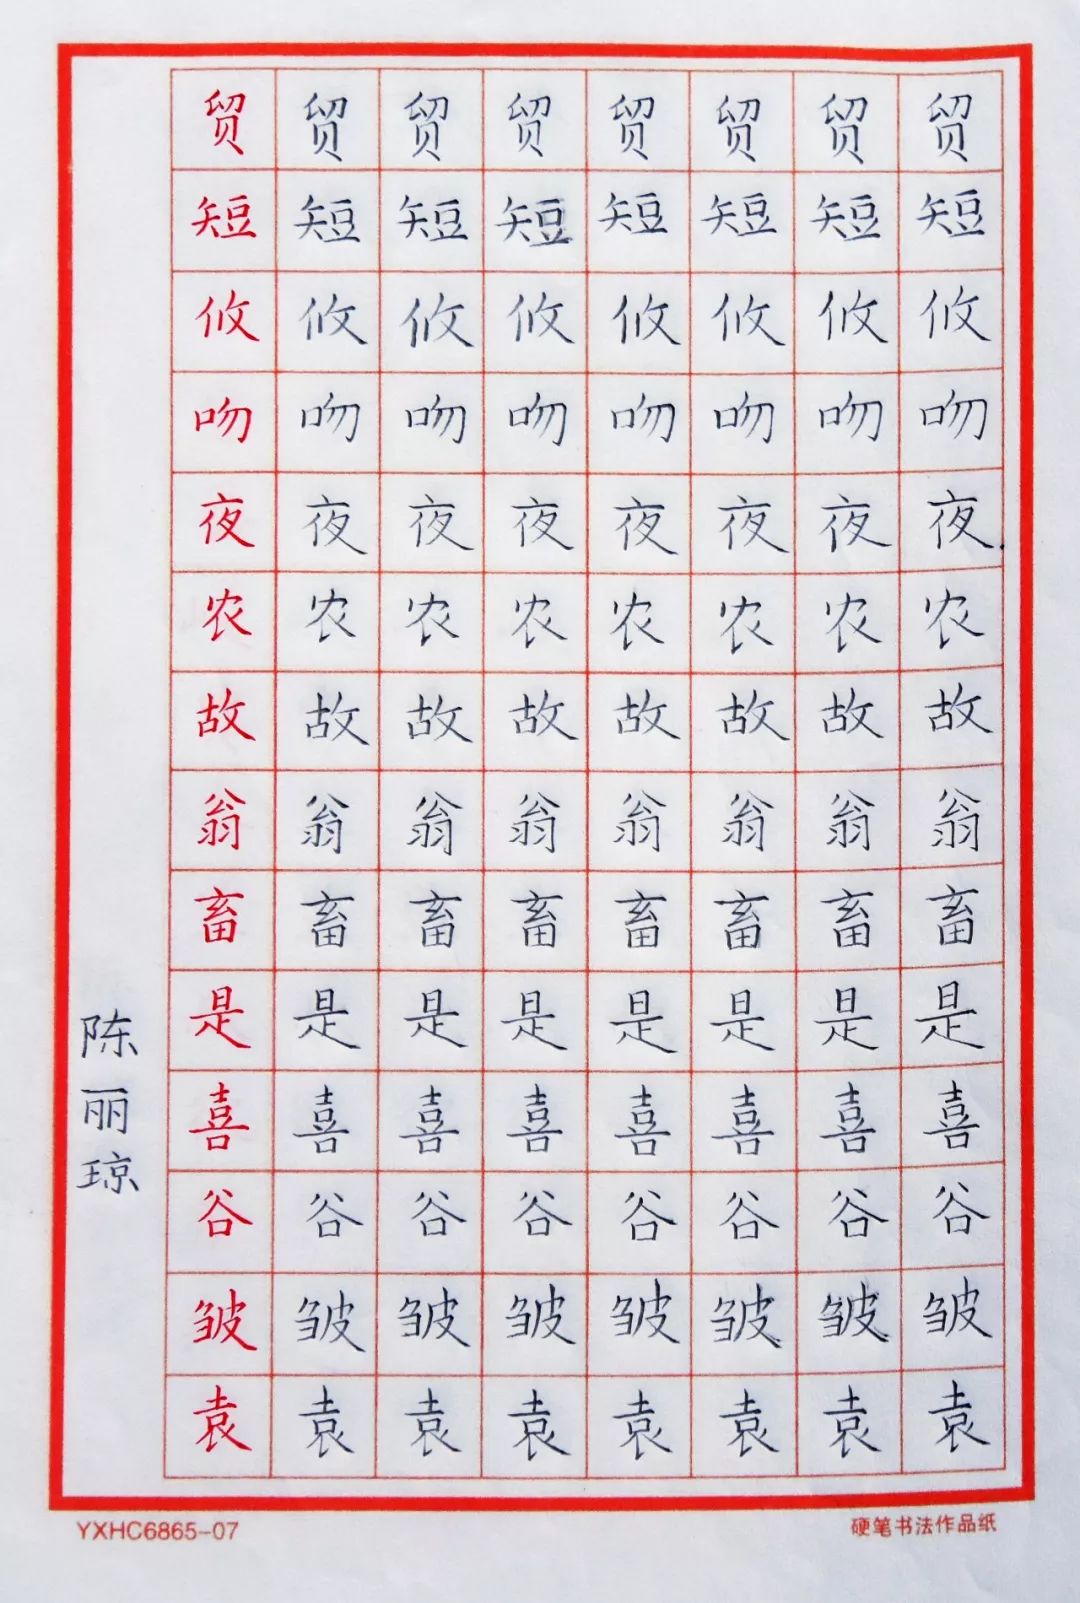 贸贸贸贸贸贸贸贸
短短短短短短短短
攸攸攸攸攸攸攸攸
吻吻吻吻吻吻吻吻
夜夜夜夜夜夜夜夜
农农农农农农农农
故故故故故故故故
翁翁翁翁翁翁翁翁
畜畜畜畜畜畜畜畜
是是是是是是是是
喜喜喜喜喜喜喜喜
谷谷谷谷谷谷谷谷
皱皱皱皱皱皱皱皱
袁袁袁袁袁袁袁袁
陈丽琼
YXHC6865-07
硬笔书法作品纸